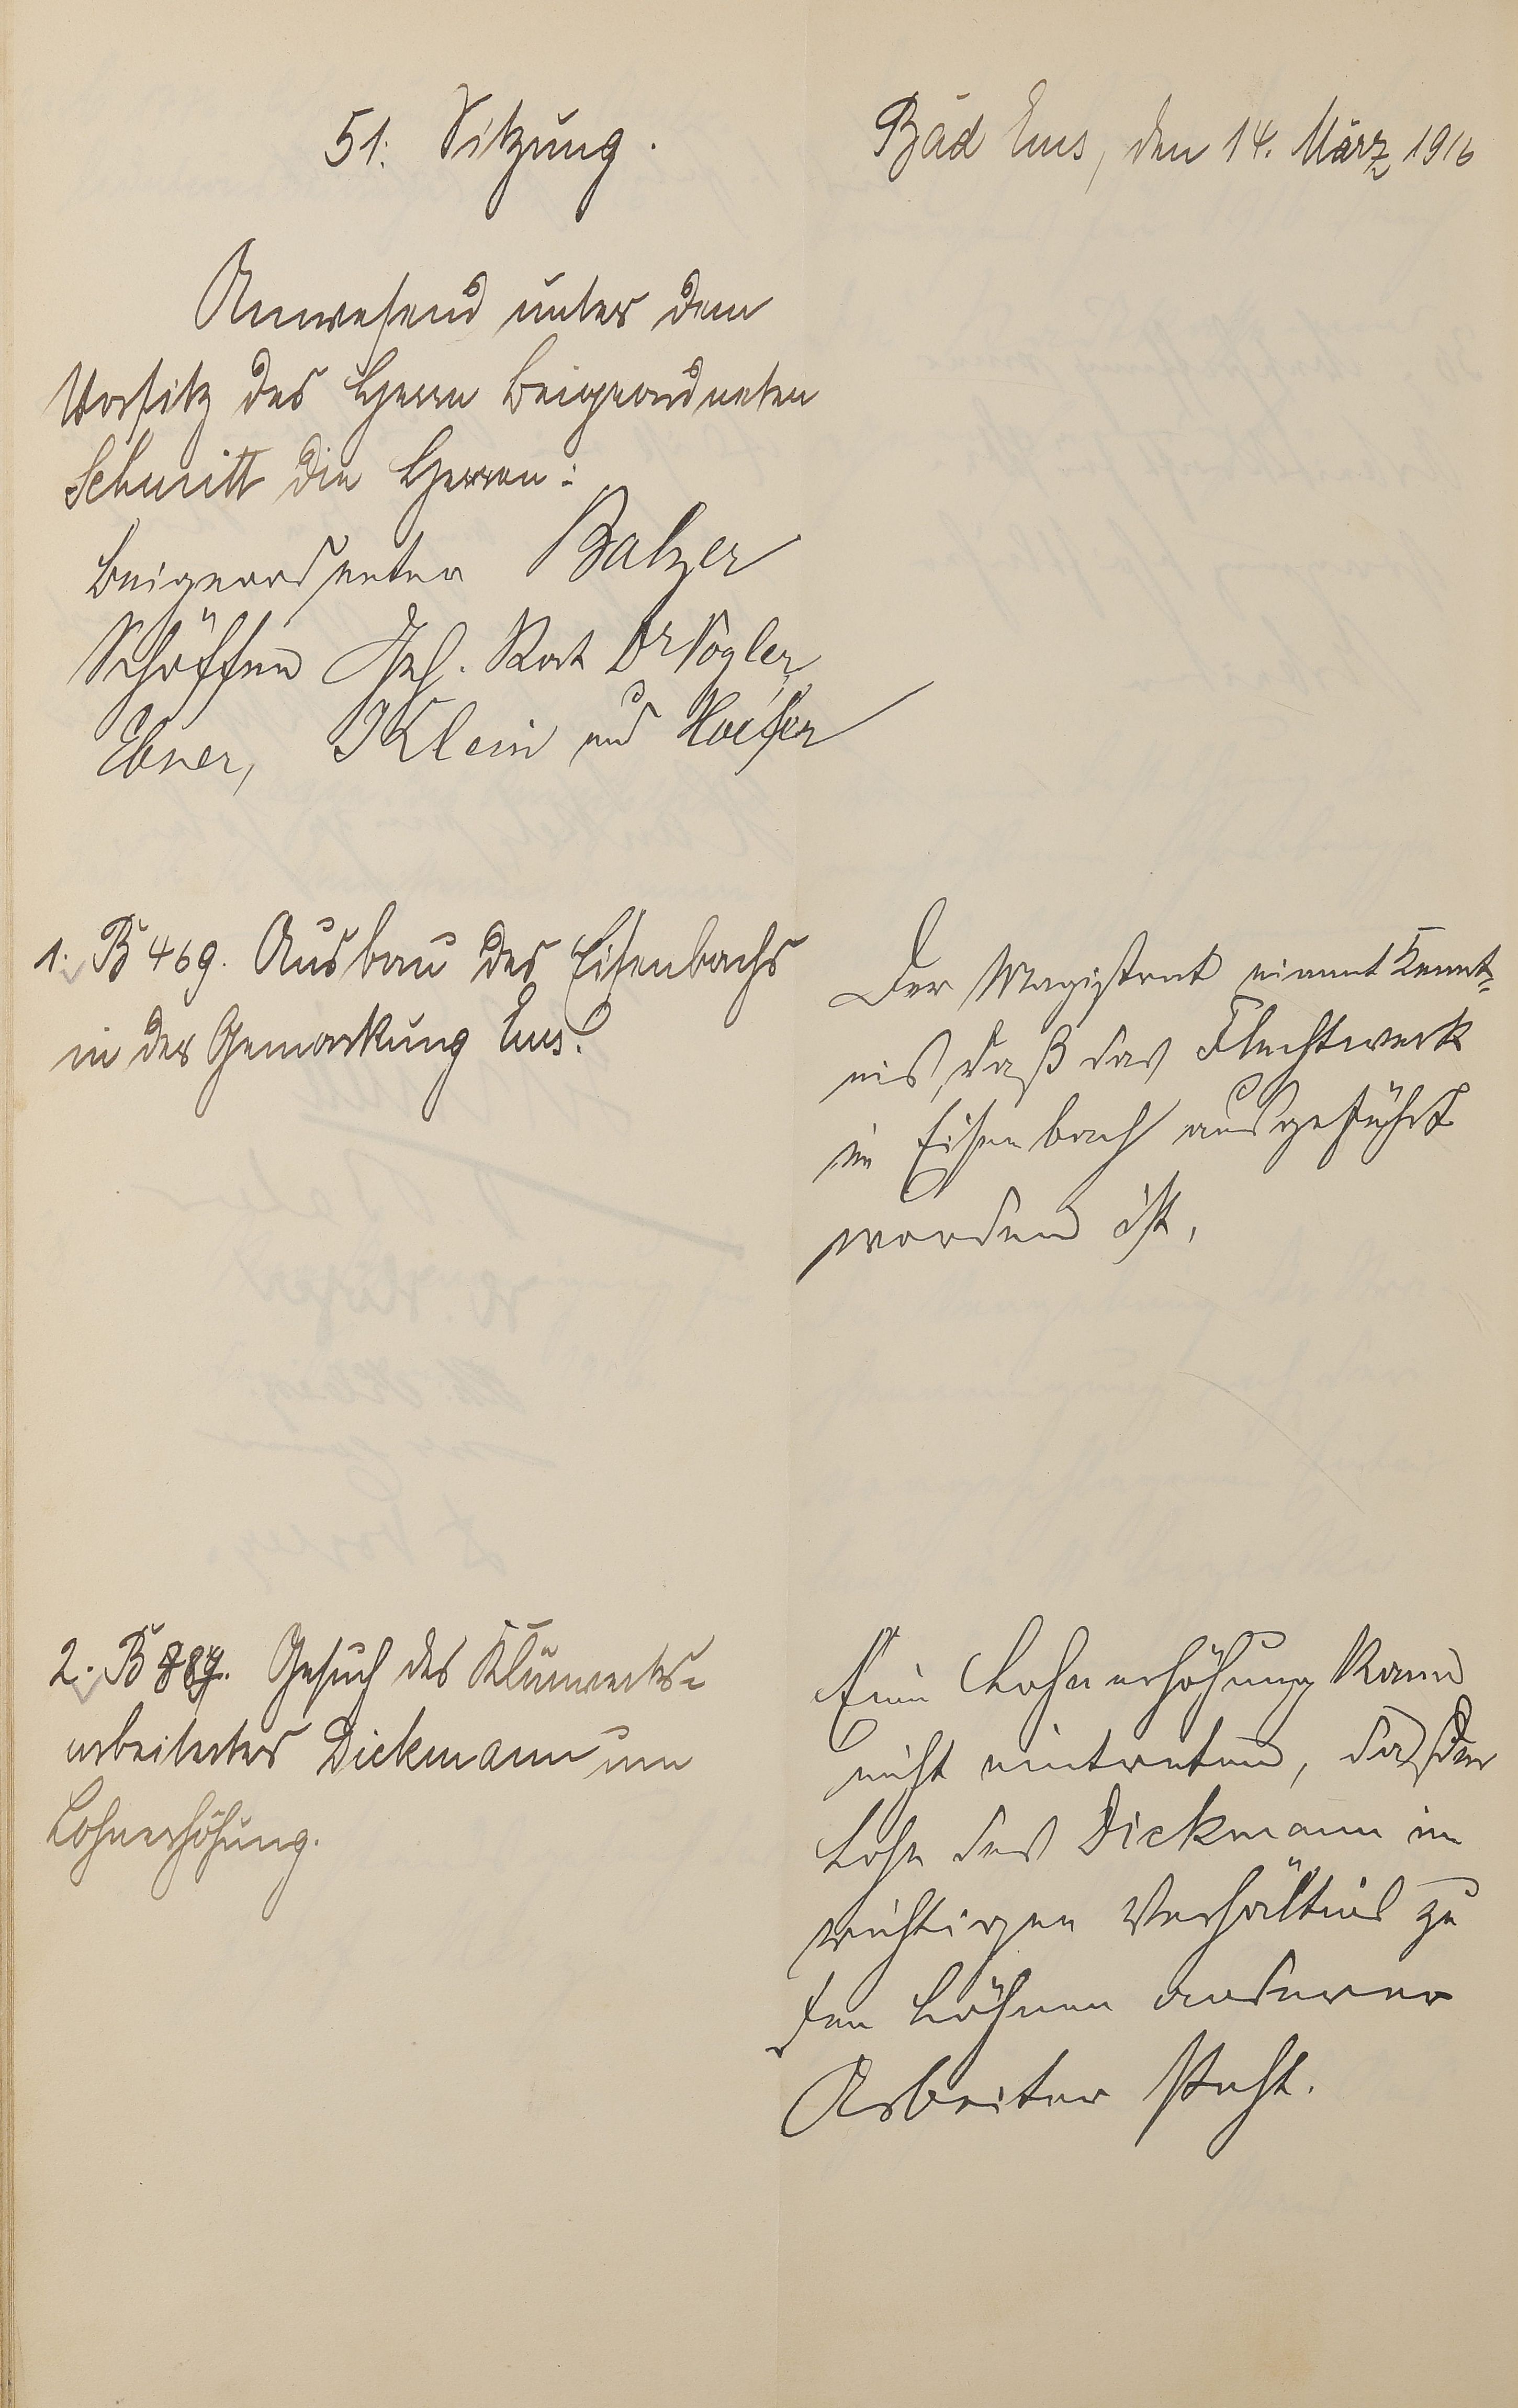 51. Sitzung.
Bad Ems, den 14. März 1916
Anwesend unter dem
Vorsitz des Herrn Beigeordneten
Schmitt die Herren:
Beigeordneter Balzer
Schöffen Geh. Rat Dr Vogler,
Ebner, J Klein und Höfer
1. B 469. Ausbau des Eisenbachs
in der Gemarkung Ems.
Der Magistrat nimmt Kennt-
nis, daß das Flechtwerk
im Eisenbach ausgeführt
worden ist.
2. B 887. Gesuch des Klärwerks-
arbeiters Dickmann um
Lohnerhöhung.
Eine Lohnerhöhung kann
nicht eintreten, da der
Lohn des Dickmann im
richtigen Verhältnis zu
den Löhnen anderer
Arbeiter steht.